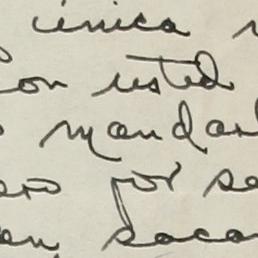 única
con usted
mandar
ero por se
en sacar